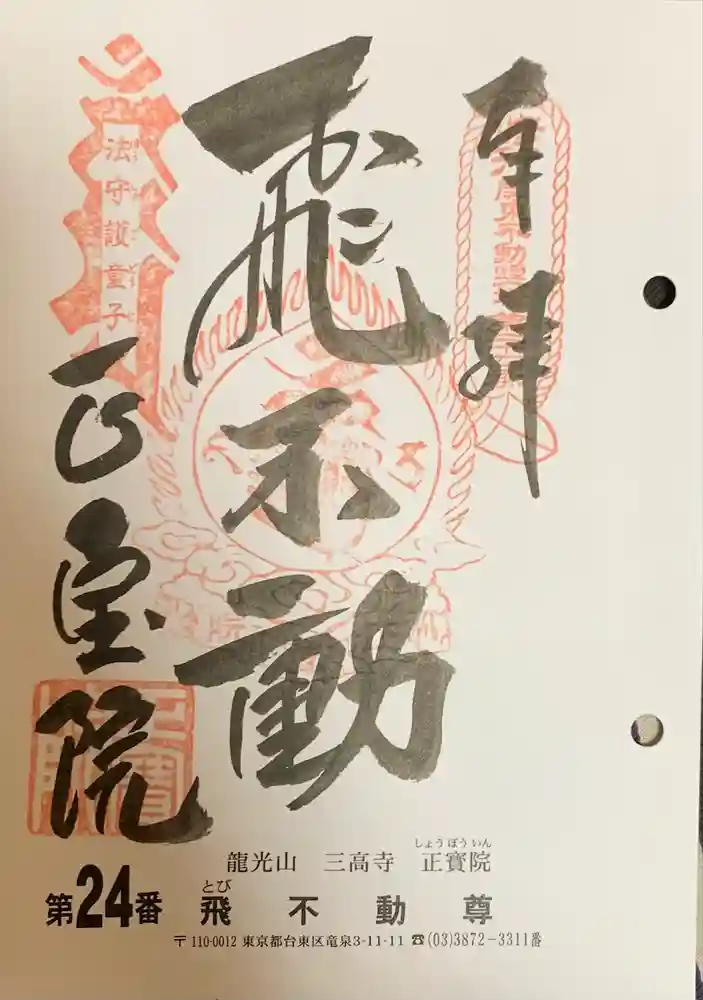 奉拝
飛不動
法守護童子
正宝院
龍光山 三高寺 正寳院
しょうぼういん
第24番 飛不動尊
とび
〒110-0012 東京都台東区竜泉3-11-11 ☎(03)3872-3311番